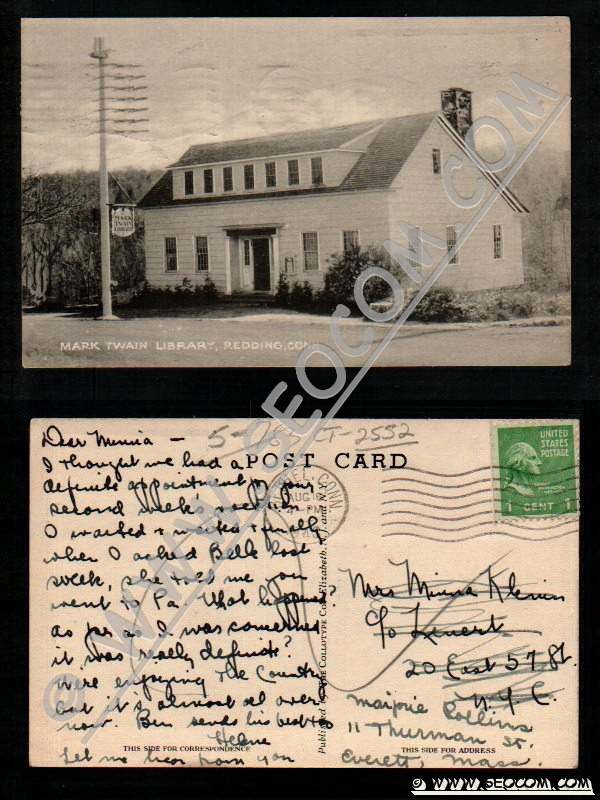 MARK TWAIN LIBRARY
MARK TWAIN LIBRARY, REDDING, CONN.
WWW.SEOCOM.COM
5-75 CT-2552
POST CARD
Dear Minna —
I thought we had a
definite appointment for your
second week's vacation
I waited & waited & finally
when I asked Belle last
week, she told me you
went to Pa. What happened?
as far as I was concerned
it was really definite?
We're enjoying the Country
but it's almost all over
now. Ben sends his best to
Helene
Let me hear from you
THIS SIDE FOR CORRESPONDENCE
Published by The Collotype Co., Elizabeth, N. J. and N.
CONN.
AUG
4-PM
UNITED
STATES
POSTAGE
1 CENT 1
Mrs Minna
c/o
20 East 57 St.
N.Y.C.
Marjorie Rollins
11 Thurman St.
Everett, Mass.
THIS SIDE FOR ADDRESS
© WWW.SEOCOM.COM